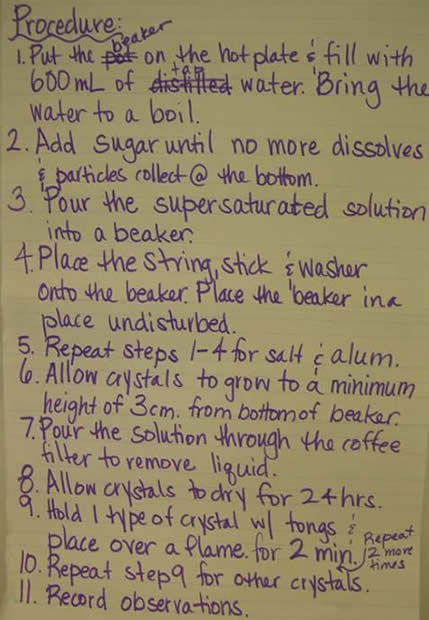 Procedure:
beaker
1. Put the pot on the hotplate & fill with
tap
600mL of distilled water. Bring the
water to a boil.
2. Add sugar until no more dissolves
& particles collect @ the bottom.
3. Pour the supersaturated solution
into a beaker.
4. Place the string, stick & washer
onto the beaker. Place the beaker in a
place undisturbed.
5. Repeat steps 1-4 for salt & alum.
6. Allow crystals to grow to a minimum
height of 3cm. from bottom of beaker.
7. Pour the solution through the coffee
filter to remove liquid.
8. Allow crystals to dry for 24 hrs.
9. Hold 1 type of crystal w/ tongs &
place over a flame. for 2 min.
Repeat
2 more
times
10. Repeat step 9 for other crystals.
11. Record observations.